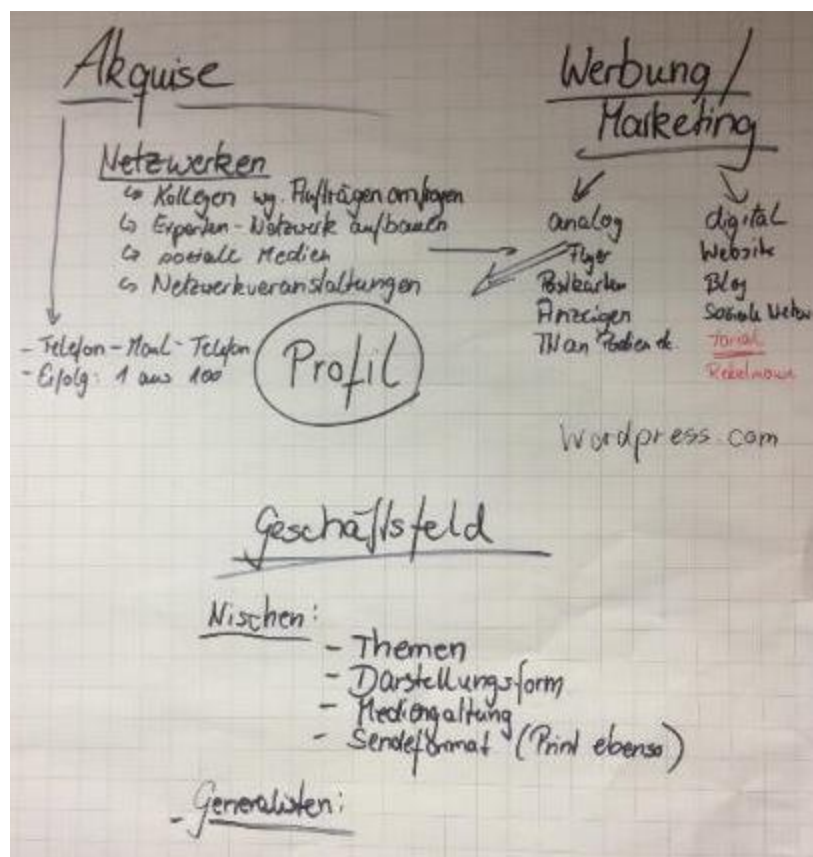 Akquise
Netzwerken
↳ Kollegen wg. Aufträgen anfragen
↳ Experten-Netzwerk aufbauen
↳ soziale Medien
↳ Netzwerkveranstaltungen
- Telefon-Mail-Telefon
- Erfolg: 1 aus 100
Profil
Werbung/
Marketing
analog
Flyer
Postkarten
Anzeigen
TN an Podien etc.
digital
Website
Blog
Soziale
Torial
Rebelmouse
Wordpress.com
Geschäftsfeld
Nischen:
- Themen
- Darstellungsform
- Mediengattung
- Sendeformat (Print ebenso)
- Generalisten: